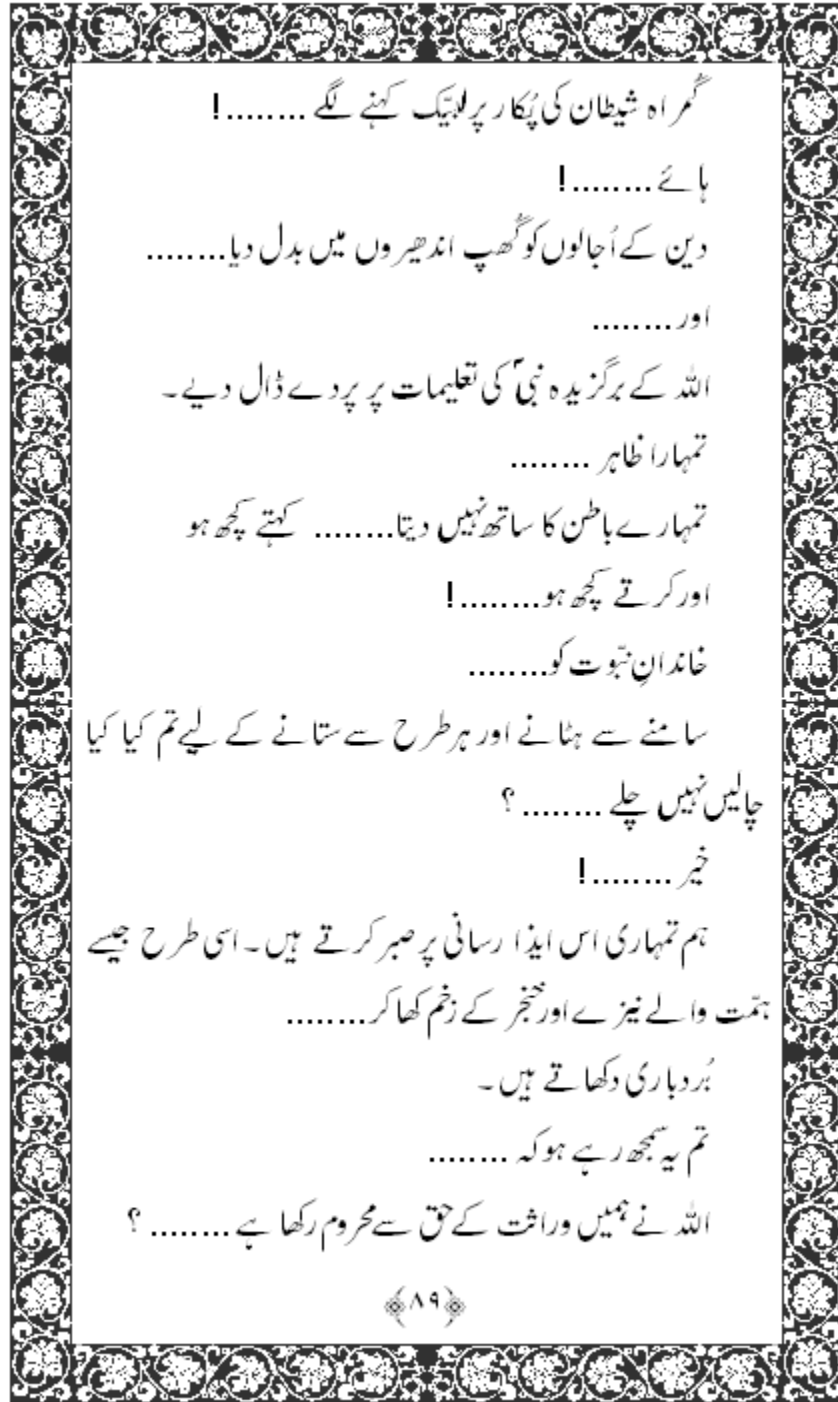 گمراہ شیطان کی پُکار پر لبّیک کہنے لگے ........!
ہائے ........!
دین کے اُجالوں کو گُھپ اندھیروں میں بدل دیا........
اور ........
اللہ کے برگزیدہ نبیؐ کی تعلیمات پر پردے ڈال دیے۔
تمہارا ظاہر ........
تمہارے باطن کا ساتھ نہیں دیتا........ کہتے کچھ ہو
اور کرتے کچھ ہو........!
خاندانِ نبّوت کو........
سامنے سے ہٹانے اور ہر طرح سے ستانے کے لیے تم کیا کیا
چالیں نہیں چلے ........ ؟
خیر ........!
ہم تمہاری اس ایذا رسانی پر صبر کرتے ہیں۔ اسی طرح جیسے
ہمّت والے نیزے اور خنجر کے زخم کھا کر........
بُردباری دکھاتے ہیں۔
تم یہ سمجھ رہے ہو کہ ........
اللہ نے ہمیں وراثت کے حق سے محروم رکھا ہے ........ ؟
﴿۸۹﴾